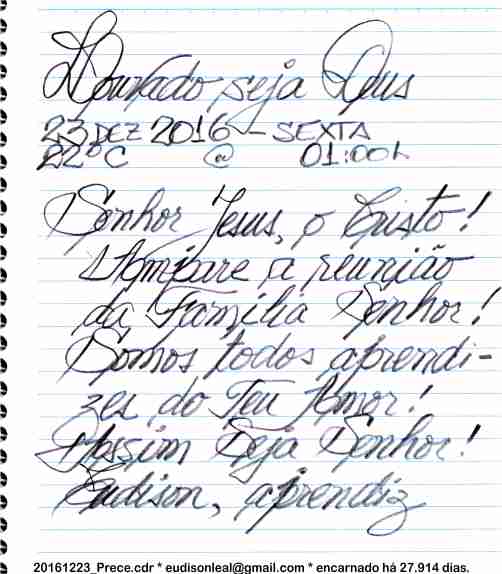 Louvado seja Deus
23 DEZ 2016 - SEXTA
22º C @ 01:00h
Senhor Jesus, o Cristo!
Ampare a reunião
da Família Senhor!
Somos todos aprendi-
zes do Teu Amor!
Assim Seja Senhor!
Eudison, aprendiz
20161223_Prece.cdr * eudisonleal@gmail.com * encarnado há 27.914 dias.